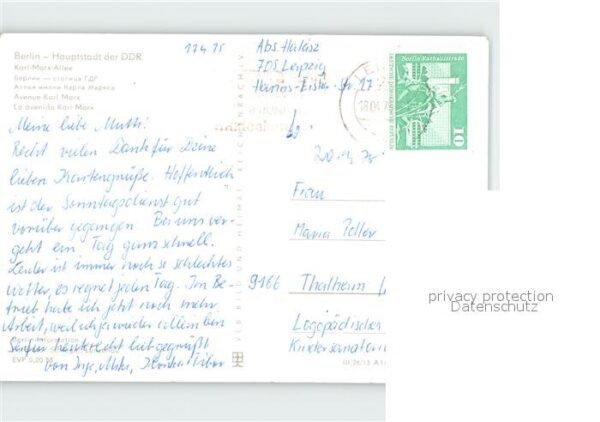 Berlin – Hauptstadt der DDR
Karl-Marx-Allee
Берлин — столица ГДР
Аллея имени Карла Маркса
Avenue Karl Marx
La avenida Karl Marx
17 4 75
Abs. Halász
705 Leipzig
Hanns-Eisler-Str. 27
18.04.7
Berlin Rathausstraße
10
"Meine liebe Mutti!
Recht vielen Dank für Deine
lieben Kartengrüße. Hoffentlich
ist der Sonntagsdienst gut
vorüber gegangen. Bei uns ver-
geht ein Tag ganz schnell.
Leider ist immer noch so schlechtes
Wetter, es regnet jeden Tag. Im Be-
trieb habe ich jetzt noch mehr
Arbeit, weil ich ja wieder allein bin
Sei für heute recht lieb gegrüßt
von Inge,
Berlin-Information
EVP 0,20 M
VEB BILD UND HEIMAT REICHENBACH I. V.
Frau
Maria
9166 Thalheim
Logopädisches
Kindersanatori
privacy protection
Datenschutz